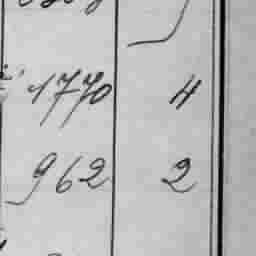 1770 4
962 2